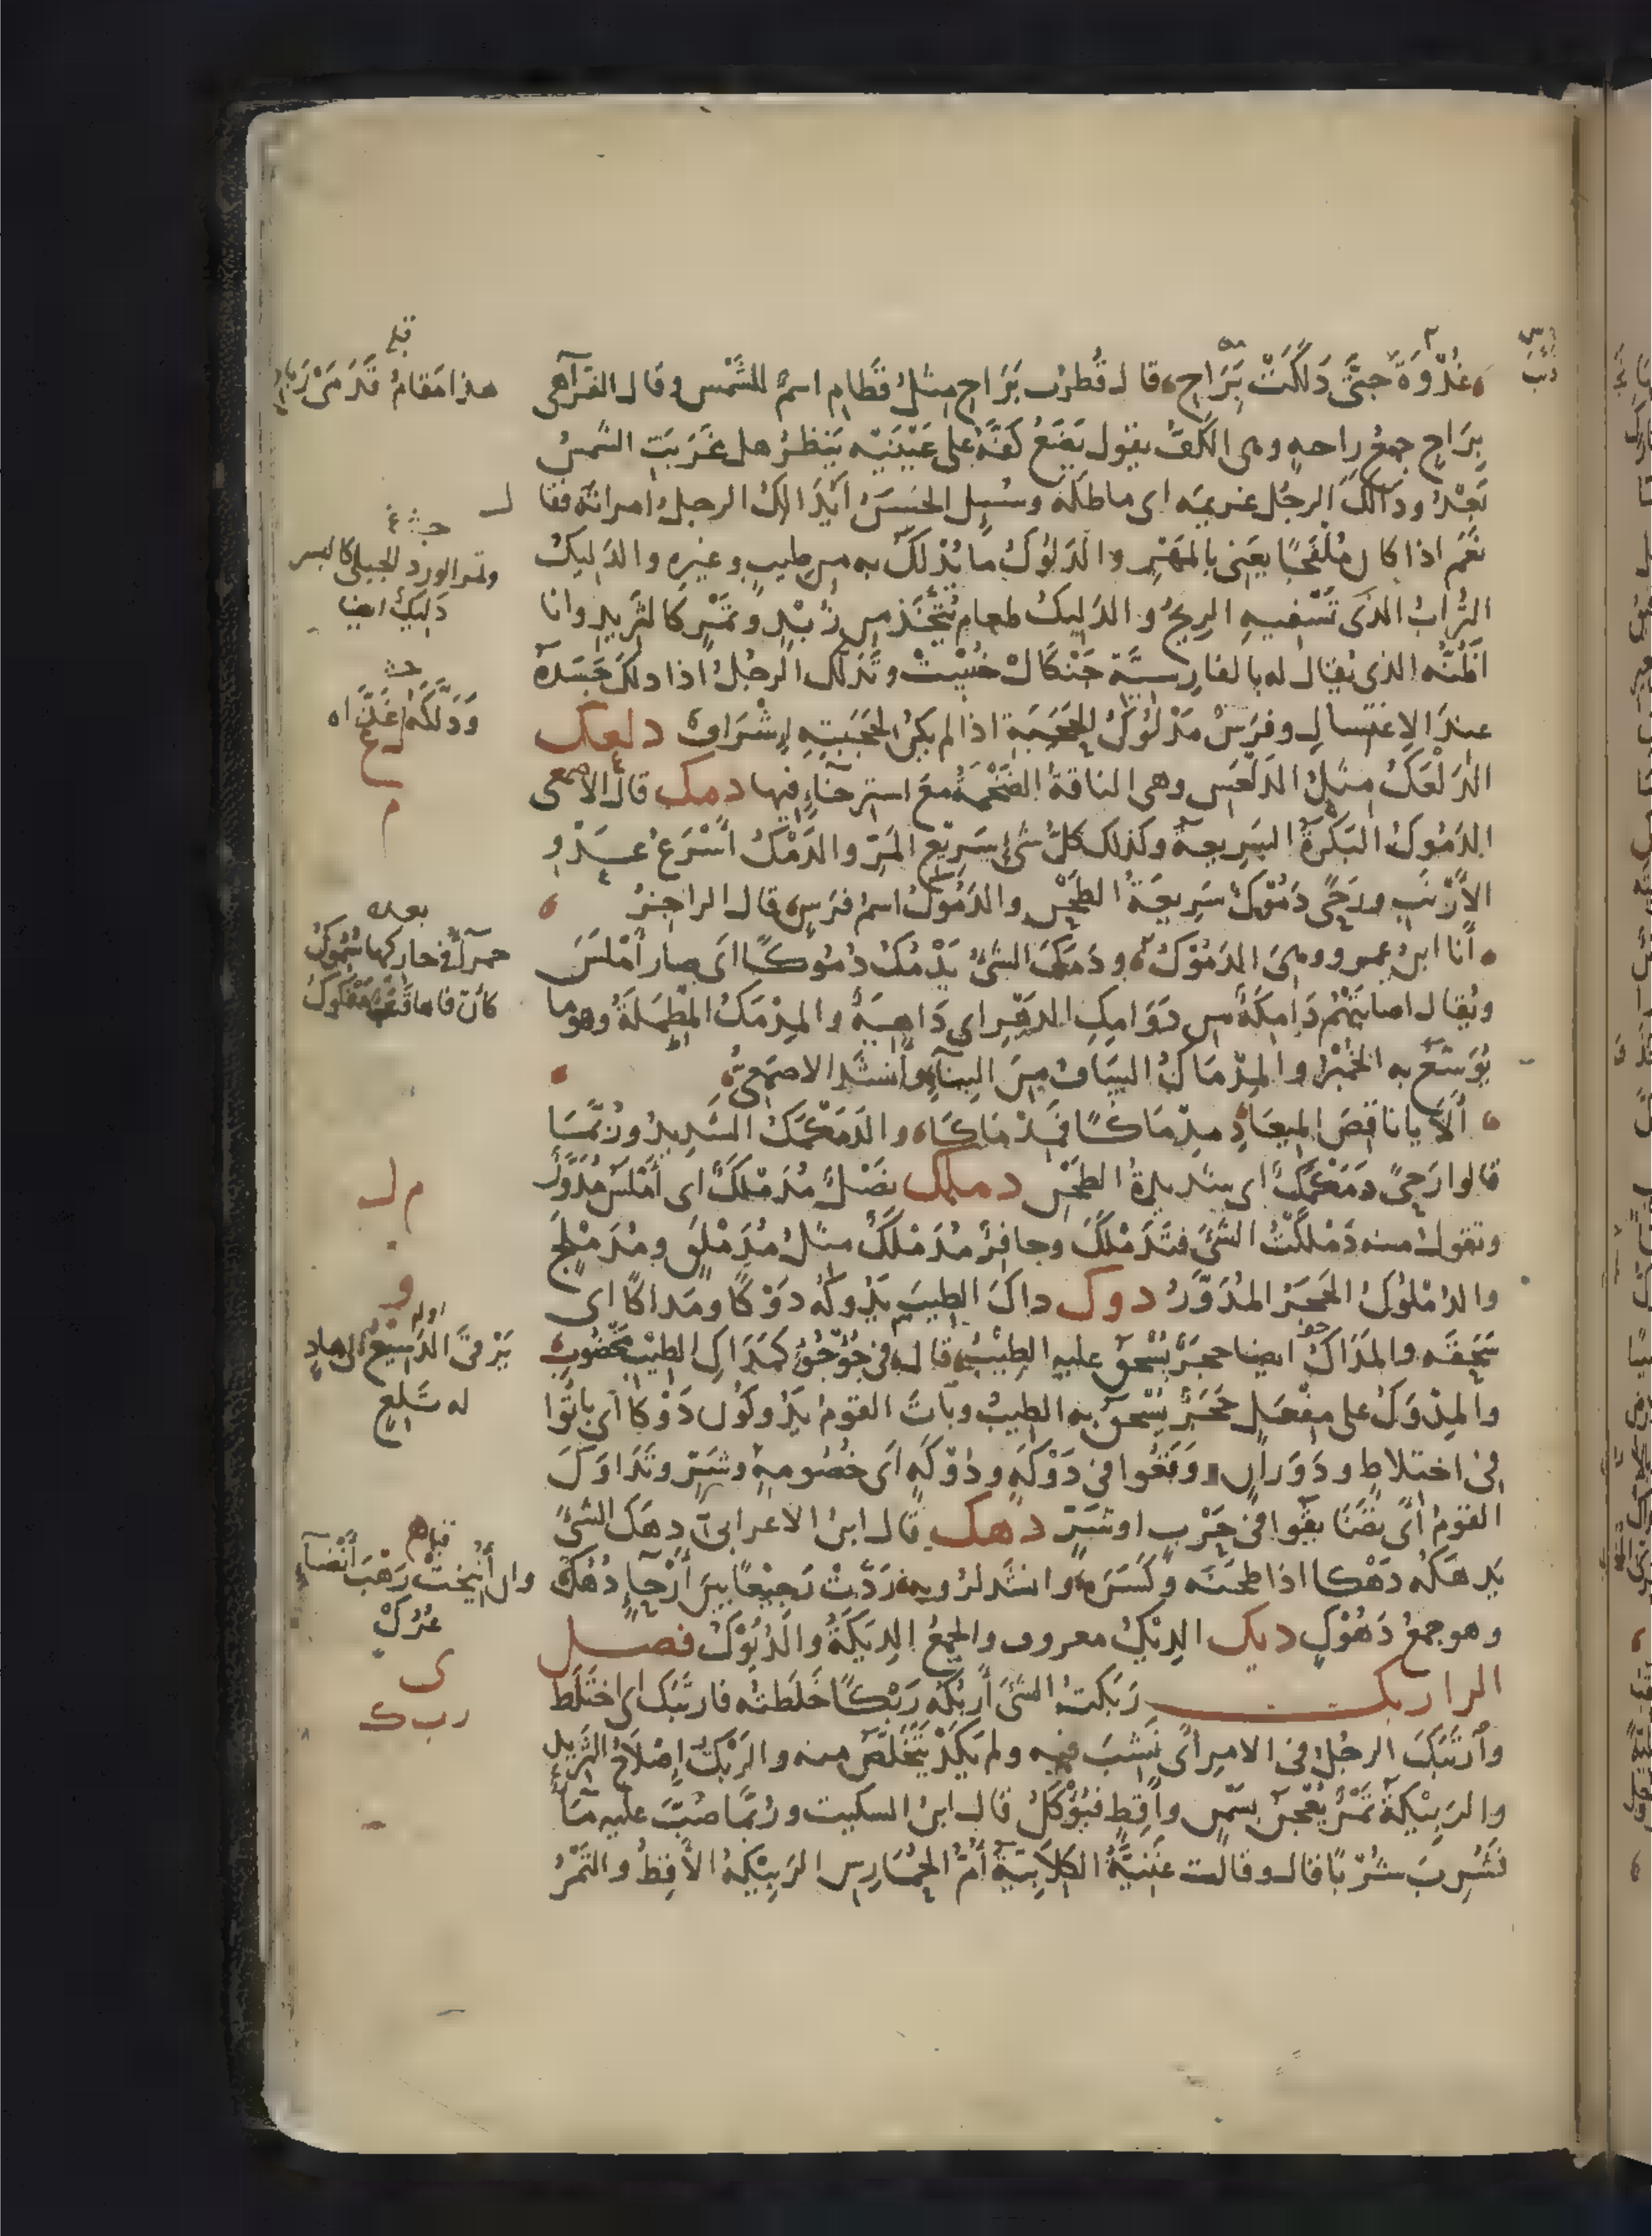 غُدْوَةً حتّى دَلَكَتْ بَرَاحِ، قال قُطرُب بَرَاحِ مثلُ قَطَامِ اسمٌ للشَّمس وقال الفرّاء هى
بِرَاحٍ جمعُ راحةٍ وهى الكفّ يقول يَضَعُ كفَّه على عَيْنَيْه يَنظرُ هل غَرَبَتِ الشمسُ
بَعْدُ ودَالَكَ الرجُل غريمَه اى ماطلَه وسُئِل الحَسَنُ أيُدَالِكُ الرجلُ امرأتَه فقال
نعَم اذا كان مُلْفَجًا يعنى بالمَهْرِ والدَلُوكُ ما يُدْلَكُ به من طيبٍ وغيرِه والدَلِيكُ
التُّرابُ الذى تَسْفِيهِ الرِيحُ والدَلِيكُ طعام يُتَّخَذ من زُبْدٍ وتَمْرٍ كالثَّرِيدِ وانا
اظُنُّه الذى يُقال له بالفارِسيَّة جَنْكَال خُسْت وتَدَلَّك الرجُلُ اذا دلك جَسَدَه
عند الاِغتسالِ وفرَسٌ مَدْلُوكُ الحَجَبَةِ اذا لم يكن لحَجَبَتِهِ إشْرَافٌ دلعك
الدَلْعَكُ مثلُ الدَلْعَسِ وهى الناقةُ الضَخْمَةُ مَعَ استرخاءٍ فيها دمك قال الاصمعى
الدَمُوكُ البَكْرَةُ السَرِيعةُ وكذلك كلّ شئ سَرِيعِ المَرّ والدَمْكُ أَسْرَعُ عَدْوِ
الأَرْنَبِ ورَحًى دَمُوكٌ سَرِيعَةُ الطَحْنِ والدَمُوكُ اسمُ فرَسٍ، قال الراجزُ
أنا ابنُ عمرو وهىَ الدَمُوكُ، ودَمَكَ الشئُ يَدْمُكُ دُمُوكًا اى صار أَمْلَسَ
ويُقال اصابَتْهُمْ دَامِكَةٌ من دَوَامِكِ الدهْرِ اى دَاهِيَةٌ والمِدْمَكُ المِطْمَلَةُ وهو ما
يُوَسَّعُ به الخُبْزُ والمِدْمَاكُ السَافُ مِنَ البِنَاءِ وأنشَد الاصمَعىُّ
أَلَا يا ناقِضَ المِيعَادِ مِدْمَاكًا فَمِدْمَاكَا، والدَمَكْمَكُ الشَدِيدُ ورُبَّمَا
قالوا رَحًى دَمَكْمَكٌ اى شديدةُ الطَحْنِ دملك نَصْلٌ مُدَمْلَكٌ اى أَمْلَسُ مُدَوَّرٌ
وتقولُ منه دَمْلَكْتُ الشئَ فتَدَمْلَكَ وحافِرٌ مُدَمْلَكٌ مثلُ مُدَمْلَقٍ ومُدَمْلَجٍ
والدُمْلُوكُ الحَجَرُ المُدَوَّرُ دوك داكَ الطيبَ يَدُوكُه دَوْكًا ومَدَاكًا اى
سَحَقَه والمَدَاكُ ايضا حجرٌ يُسْحَق عليه الطِيبُ، قال، فى جُؤْجُؤٍ كمَدَاكِ الطِيبِ مَخْضُوبِ
والمِدْوَكُ على مِفْعَلٍ حَجَرٌ يُسْحق به الطيبُ وباتَ القومُ يَدُوكُونَ دَوْكًا اى باتُوا
فى اختلاطٍ ودَوَرانٍ ووَقَعُوا فى دَوْكَةٍ ودُوكَةٍ اى خُصُومةٍ وشَرٍّ وتَدَاوَكَ
القومُ اى تضَايقُوا فى حَرْبٍ اوشَرٍّ دهك قال ابنُ الاعرابىّ دهَك الشئَ
يَدهَكُه دَهْكا اذا طحنَه وكَسَرَه وانشَد لرُوبة، رَدَّتْ رَجِيعًا بينَ أَرْحاءٍ دُهُكْ
وهو جمعُ دَهُوكٍ ديك الدِيكُ معروف والجمعُ الدِيَكَةُ والدُيُوكُ فصل
الراء ربك رَبَكتُ الشئَ أَرْبُكُه رَبْكًا خَلَطتُه فارتَبَك اى اختَلَط
وأرتَبَكَ الرجُلُ فى الامر اى نَشِبَ فيه ولم يَكَدْ يَتَخَلَّصُ منه والرَبْكُ إصْلَاحُ الثَرِيدِ
والرَبِيكَةُ تَمْرٌ يُعْجَنُ بسَمْنٍ واَقِطٍ فيُؤْكَلُ قال ابنُ السكيت ورُبّمَا صُبَّ عليه مَاءٌ
فشُرِبَ شُرْبًا قال وقالت غَنِيَّةُ الكِلَابِيَّةُ أُمُّ الحُمَارِس الرَبِيكةُ الأقِطُ والتَمْرُ
قبله
هذا مَقامُ قَدَمَىْ رَبَاحِ
وثمر الورد الجبلى كالبسر
دَلِيكٌ ايضا
بعده
حمراءُ فى حاركها سُمُوكُ
كأنّ فاها قَتَبٌ مَفْكُوكُ
م ل
و
اوله
يَرْقَى الدَسِيعُ الى هادٍ
له تَلِعٍ
قبله
وان أُنِيخَتْ رَهْبُ أَنْضاءٍ
عُرُكْ
ى
ر ب ك